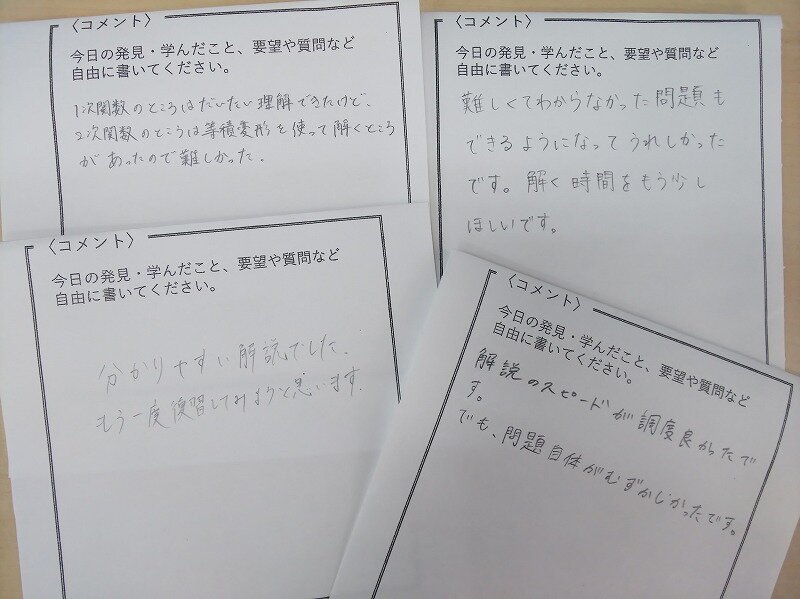 〈コメント〉
今日の発見・学んだこと、要望や質問など
自由に書いてください。
1次関数のところはだいたい理解できたけど、
2次関数のところは等積変形を使って解くところ
があったので難しかった.
〈コメント〉
今日の発見・学んだこと、要望や質問など
自由に書いてください。
難しくてわからなかった問題も
できるようになってうれしかった
です。解く時間をもう少し
ほしいです。
〈コメント〉
今日の発見・学んだこと、要望や質問など
自由に書いてください。
分かりやすい解説でした.
もう一度復習してみようと思います.
〈コメント〉
今日の発見・学んだこと、要望や質問など
自由に書いてください。
解説のスピードが調度良かったで
す。
でも、問題自体がむずかしかったです。